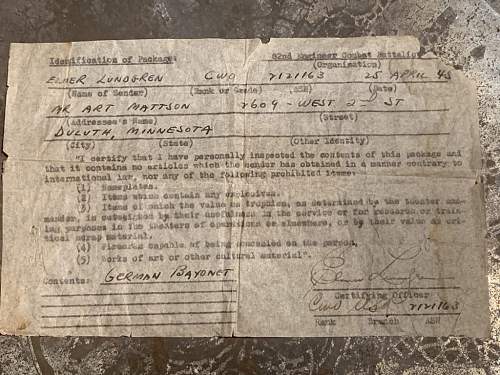 Identification of Package: 82nd Engineer Combat Battalion
(Organization)
ELMER LUNDGREN CWO 2121163 25 APRIL 45
(Name of Sender) (Rank or Grade) ASN (Date)
MR ART MATTSON 2609 - WEST 2ND ST
(Addressee's Name) (Street)
DULUTH, MINNESOTA
(City) (State) (Other Identity)
"I certify that I have personally inspected the contents of this package and
that it contains no articles which the sender has obtained in a manner contrary to
international law, nor any of the following prohibited items:
(1) Nameplates.
(2) Items which contain any explosives.
(3) Items of which the value as trophies, as determined by the theater com-
mander, is outweighed by their usefulness in the service or for research or train-
ing purposes in the theaters of operations or elsewhere, or by their value as cri-
tical scrap material.
(4) Firearms capable of being concealed on the person.
(5) Works of art or other cultural material".
Contents: GERMAN BAYONET
Elmer Lundgren
Certifying Officer
CWO 2121163
Rank Branch ASN